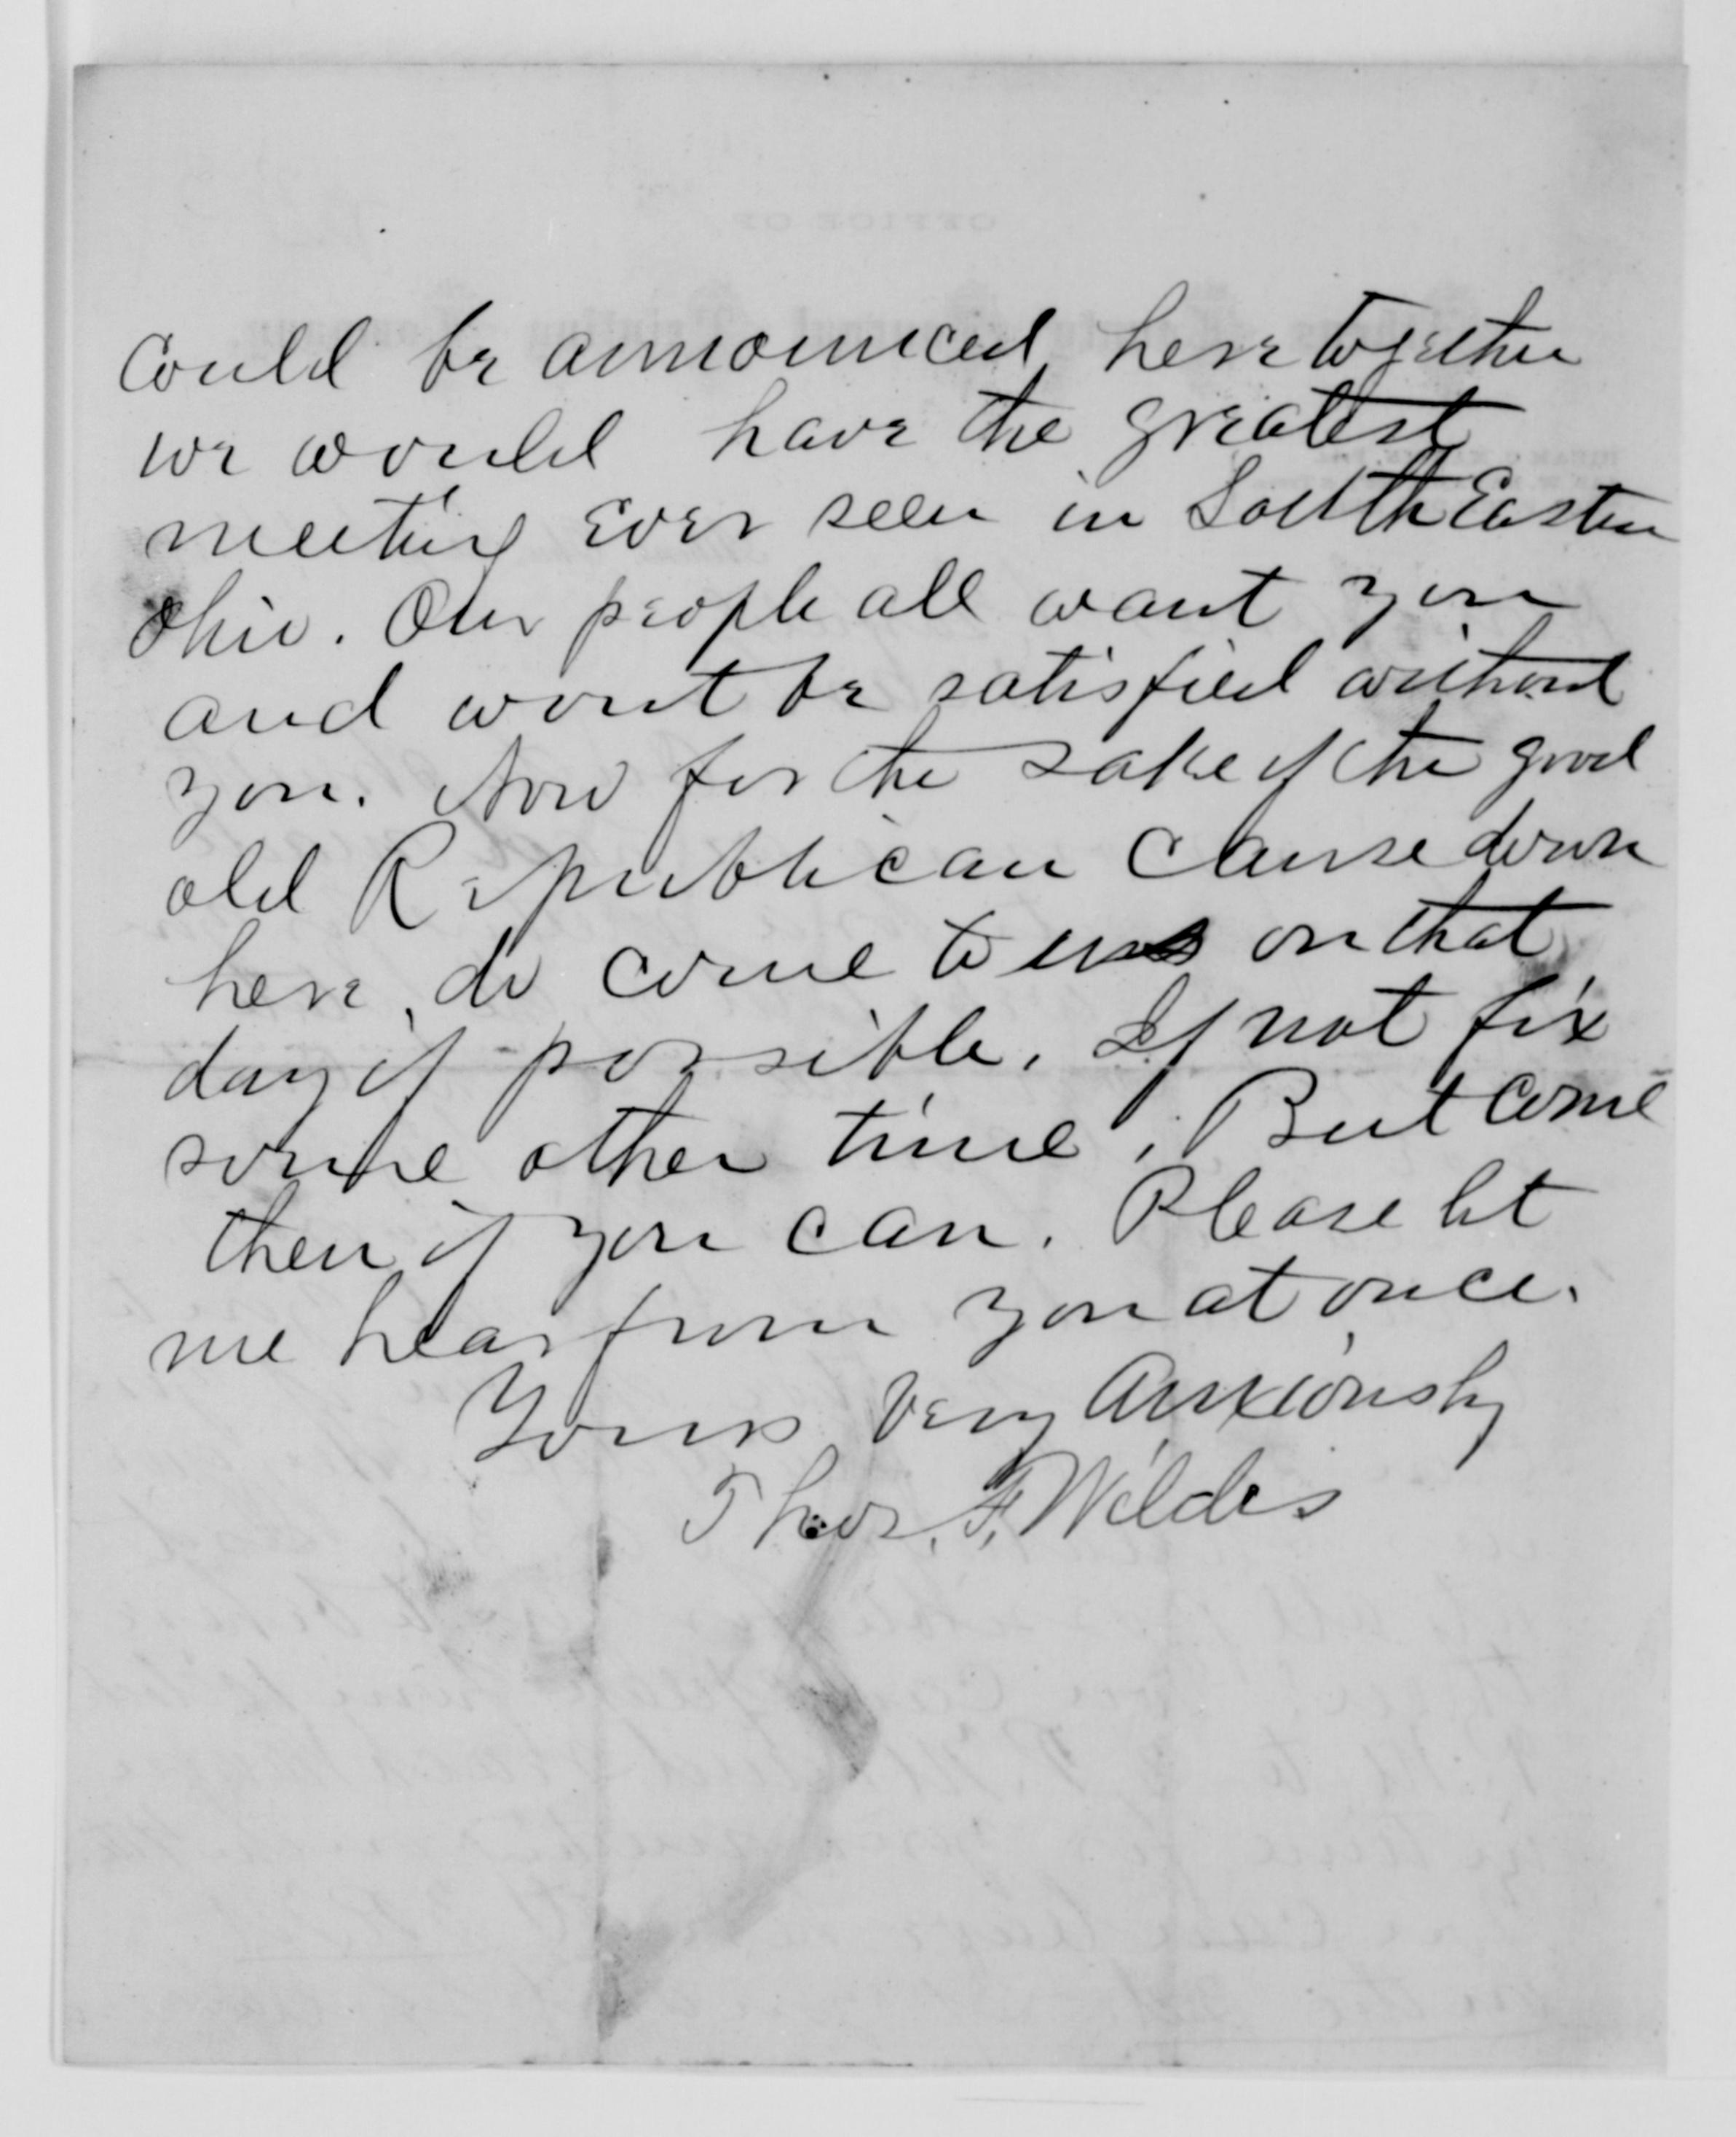 could be announced here together
we would have the greatest
meeting ever seen in South Eastern
Ohio. Our people all want you
and wont be satisfied without
you. Now for the sake of the good
old Republican cause down
here, do come to us on that
day if possible. If not fix
some other time. But come
then if you can. Please let
me hear from you at once.
Yours very anxiously
Thos. F. Wildes